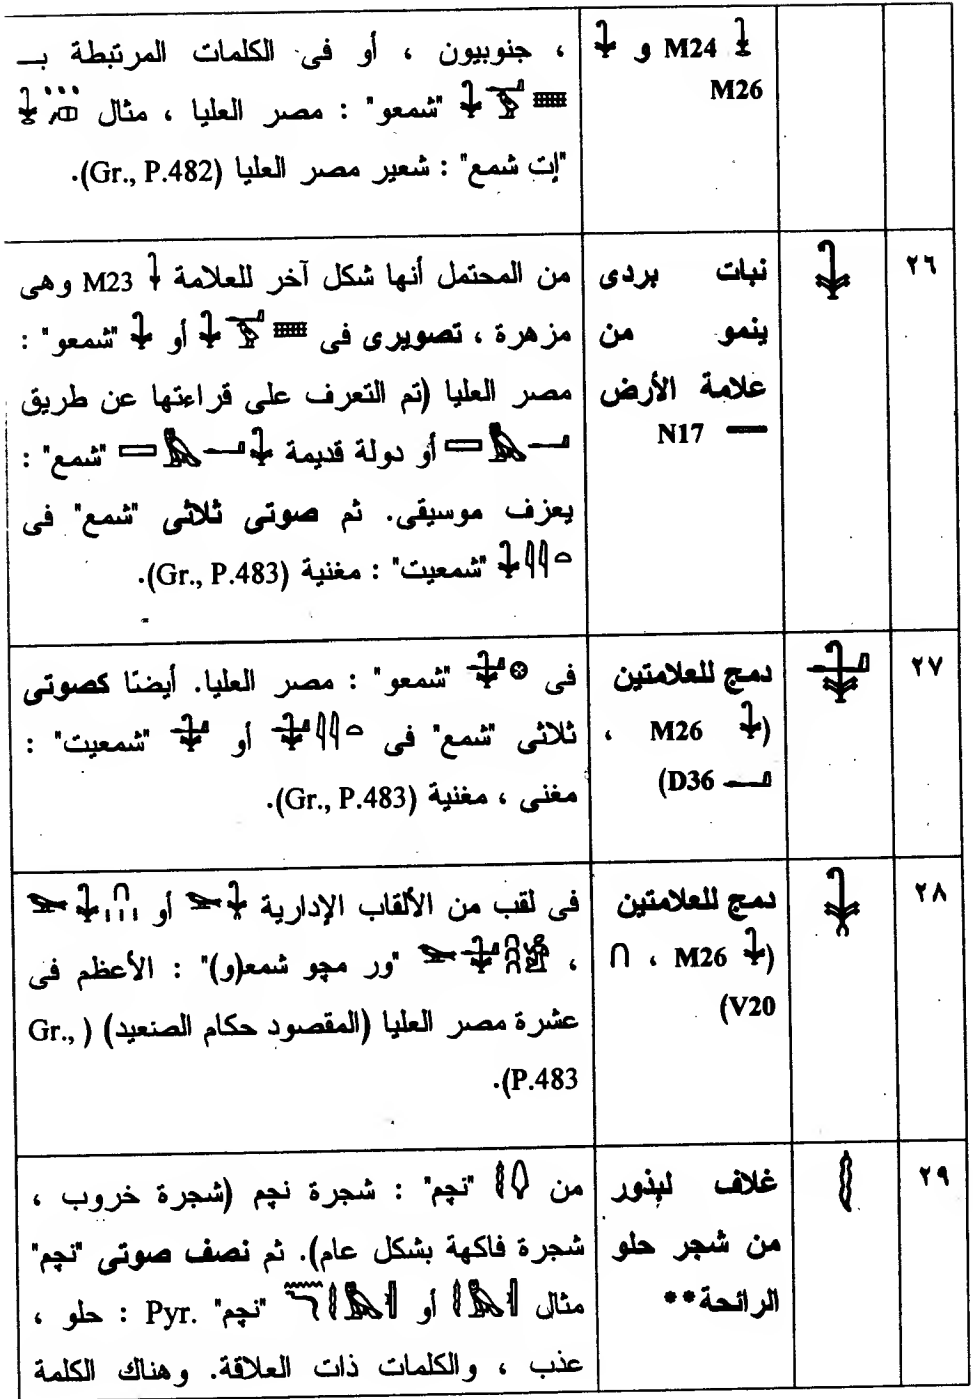 M24 و
M26
، جنوبيون ، أو فى الكلمات المرتبطة بــ
"شمعو" : مصر العليا ، مثال
"إت شمع" : شعير مصر العليا (Gr., P.482).
٢٦
نبات بردى
ينمو من
علامة الأرض
N17
من المحتمل أنها شكل آخر للعلامة M23 وهى
مزهرة ، تصويرى فى أو "شمعو" :
مصر العليا (تم التعرف على قراءتها عن طريق
أو دولة قديمة "شمع" :
يعزف موسيقى. ثم صوتى ثلاثى "شمع" فى
"شمعيت" : مغنية (Gr., P.483).
٢٧
دمج للعلامتين
(M26 ،
D36)
فى "شمعو" : مصر العليا. أيضنا كصوتى
ثلاثى "شمع" فى أو "شمعيت" :
مغنى ، مغنية (Gr., P.483).
٢٨
دمج للعلامتين
(M26 ،
V20)
فى لقب من الألقاب الإدارية أو
، "ور مچو شمع(و)" : الأعظم فى
عشرة مصر العليا (المقصود حكام الصنعيد) (Gr.,
P.483).
٢٩
غلاف لبذور
من شجر حلو
الرائحة**
من "نچم" : شجرة نچم (شجرة خروب ،
شجرة فاكهة بشكل عام). ثم نصف صوتى "نچم"
مثال أو "نچم" Pyr. : حلو ،
عذب ، والكلمات ذات العلاقة. وهناك الكلمة